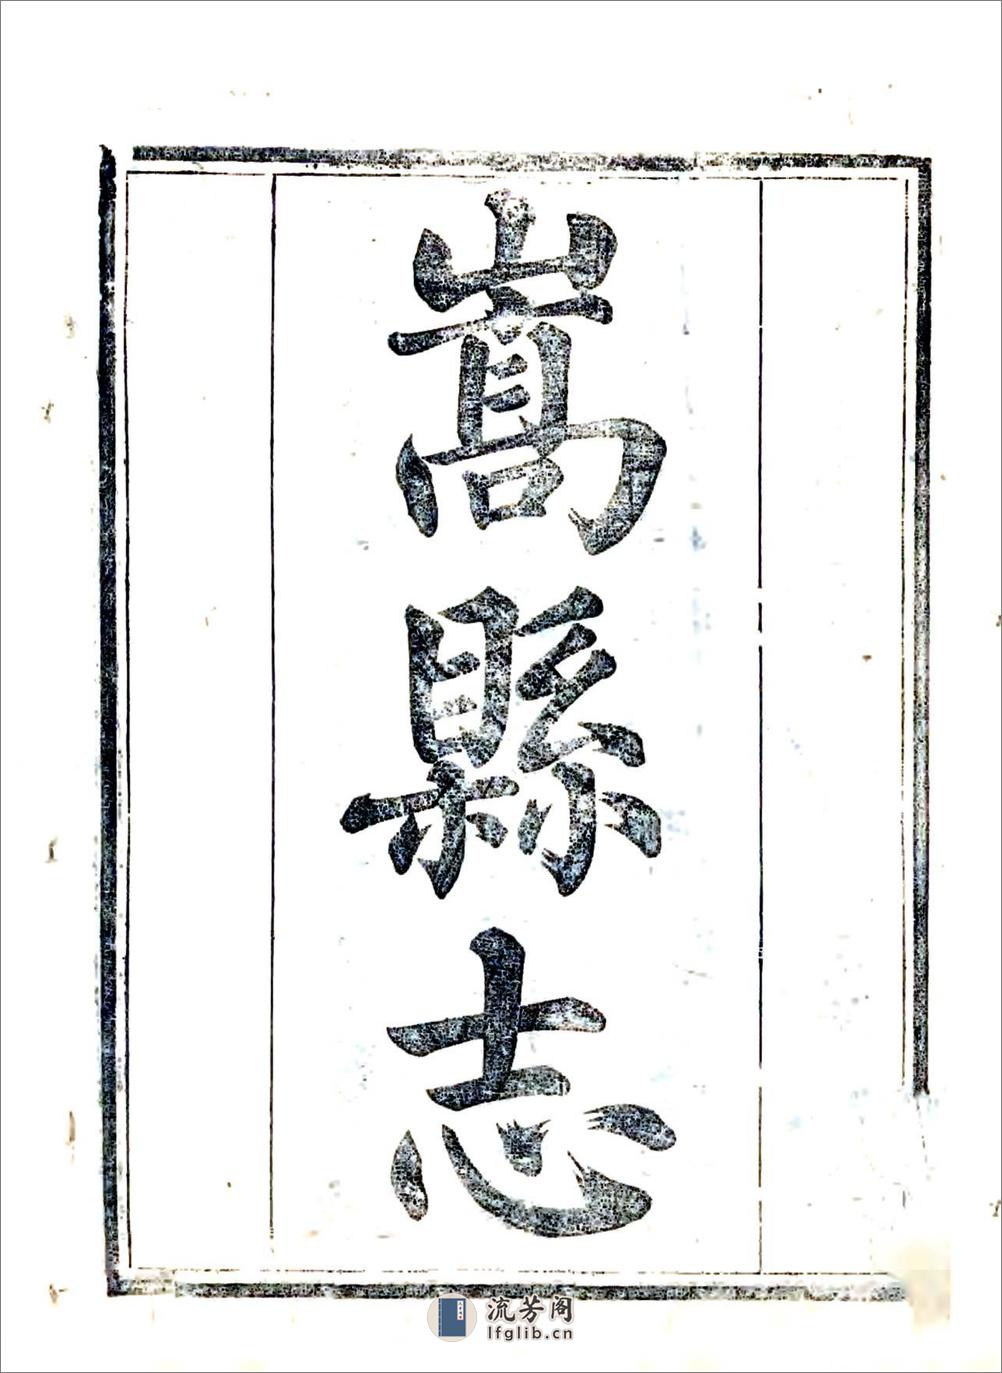 嵩縣志
流芳阁
lfglib.cn